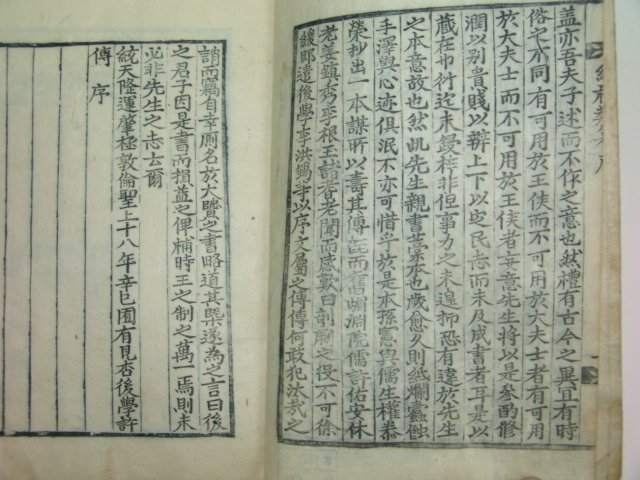 盖亦吾夫子述而不作之意也然禮有古今之異宜有時
俗之不同有可用於王侯而不可用於大夫士者有可用
於大夫士而不可用於王侯者每意先生將以是參酌修
潤以別貴賤以辨上下以定民志而未及成書者耳是以
藏在巾衍迄未鋟梓非但事力之未遑抑恐有違於先生
之本意故也然此先生親書藁本也歲愈久則紙爛蠹蝕
手澤與心迹俱泯不亦可惜乎於是本孫憲與儒生權恭
榮抄出一本謀所以壽其傳旣而舊嵋淵院儒許佑安休
老姜鎮秀李根王諸耆老聞而感歎曰剞劂之役不可徐
緩郎遣後學李洪錫等以序文屬之傳傳何敢犯汰哉之
誚而竊自幸厠名於大賢之書略道其槩遂為之言曰後
之君子因是書而損益之俾補時王之制之萬一焉則未
必非先生之志云爾
統天隆運肇極敦倫聖上十八年辛巳圉有見杏後學許
傳序